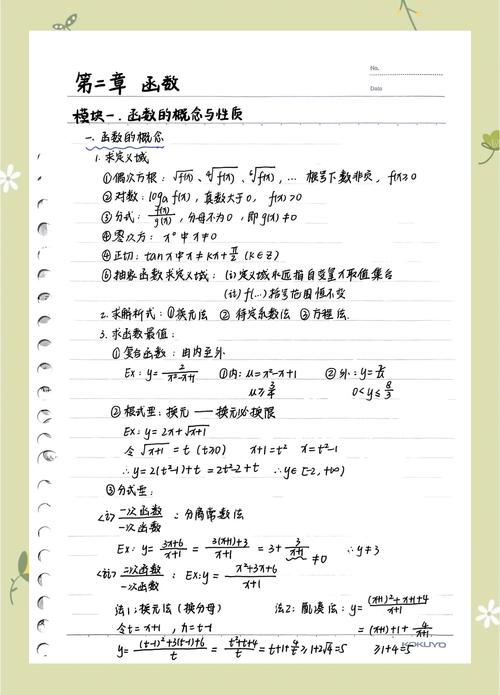 No.
Date
第二章 函数
模块一.函数的概念与性质
一.函数的概念
1.求定义域
①偶次方根:√f(x)、⁴√f(x)、⁶√f(x),… 根号下数非负,f(x)≥0
②对数:logₐf(x),真数大于0,f(x)>0
③分式:f(x)/g(x),分母不为0,即g(x)≠0
④零次方:x⁰中x≠0
⑤正切:tanx中x≠kπ+π/2(k∈Z)
⑥抽象函数求定义域:(i)定义域永远指自变量x取值集合
(ii)f(…)括号范围恒不变
2.求解析式:①换元法 ②待定系数法 ③方程法.
3.求函数最值:
①复合函数:由内至外
Ex:y=2/(x²-x+1) ①内:u=x²-x+1 ②外:y=2/u
u≥3/4 0<y≤8/3
②根式型:换元——换元必换限
Ex:y=2x+√(x+1)
令√(x+1)=t(t≥0) x+1=t² x=t²-1
∴y=2(t²-1)+t=2t²-2+t ∴y∈[-2,+∞)
③分式型:
<i>一次函数/一次函数:分离常数法
Ex:y=(3x+6)/(x+1)=(3(x+1)+3)/(x+1)=3+3/(x+1) ≠0 ∴y≠3
<ii>二次函数/一次函数:Ex:y=(x²+3x+6)/(x+1)
法1:换元法(换分母) 法2:配凑法:y=((x+1)²+x+1+4)/(x+1)
令t=x+1,x=t-1 =(x+1)+1+4/(x+1)
y=((t-1)²+3(t-1)+6)/t=(t²+t+4)/t=t+1+4/t≥1+2√4=5 ≥1+4=5
KOKUYO